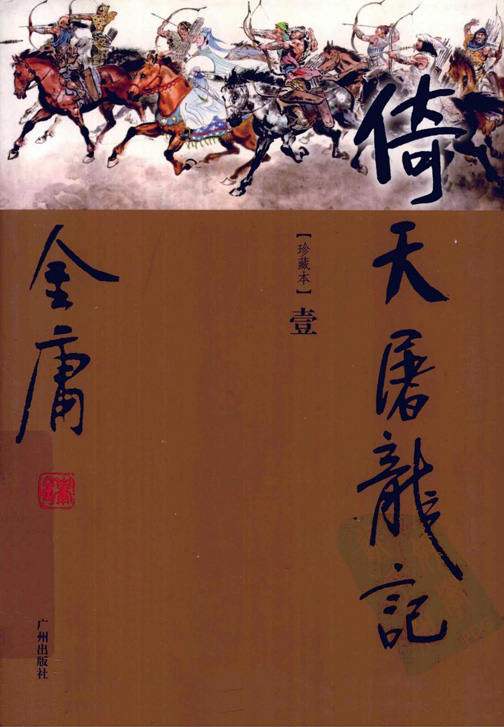 倚天屠龍記
【珍藏本】壹
金庸
广州出版社